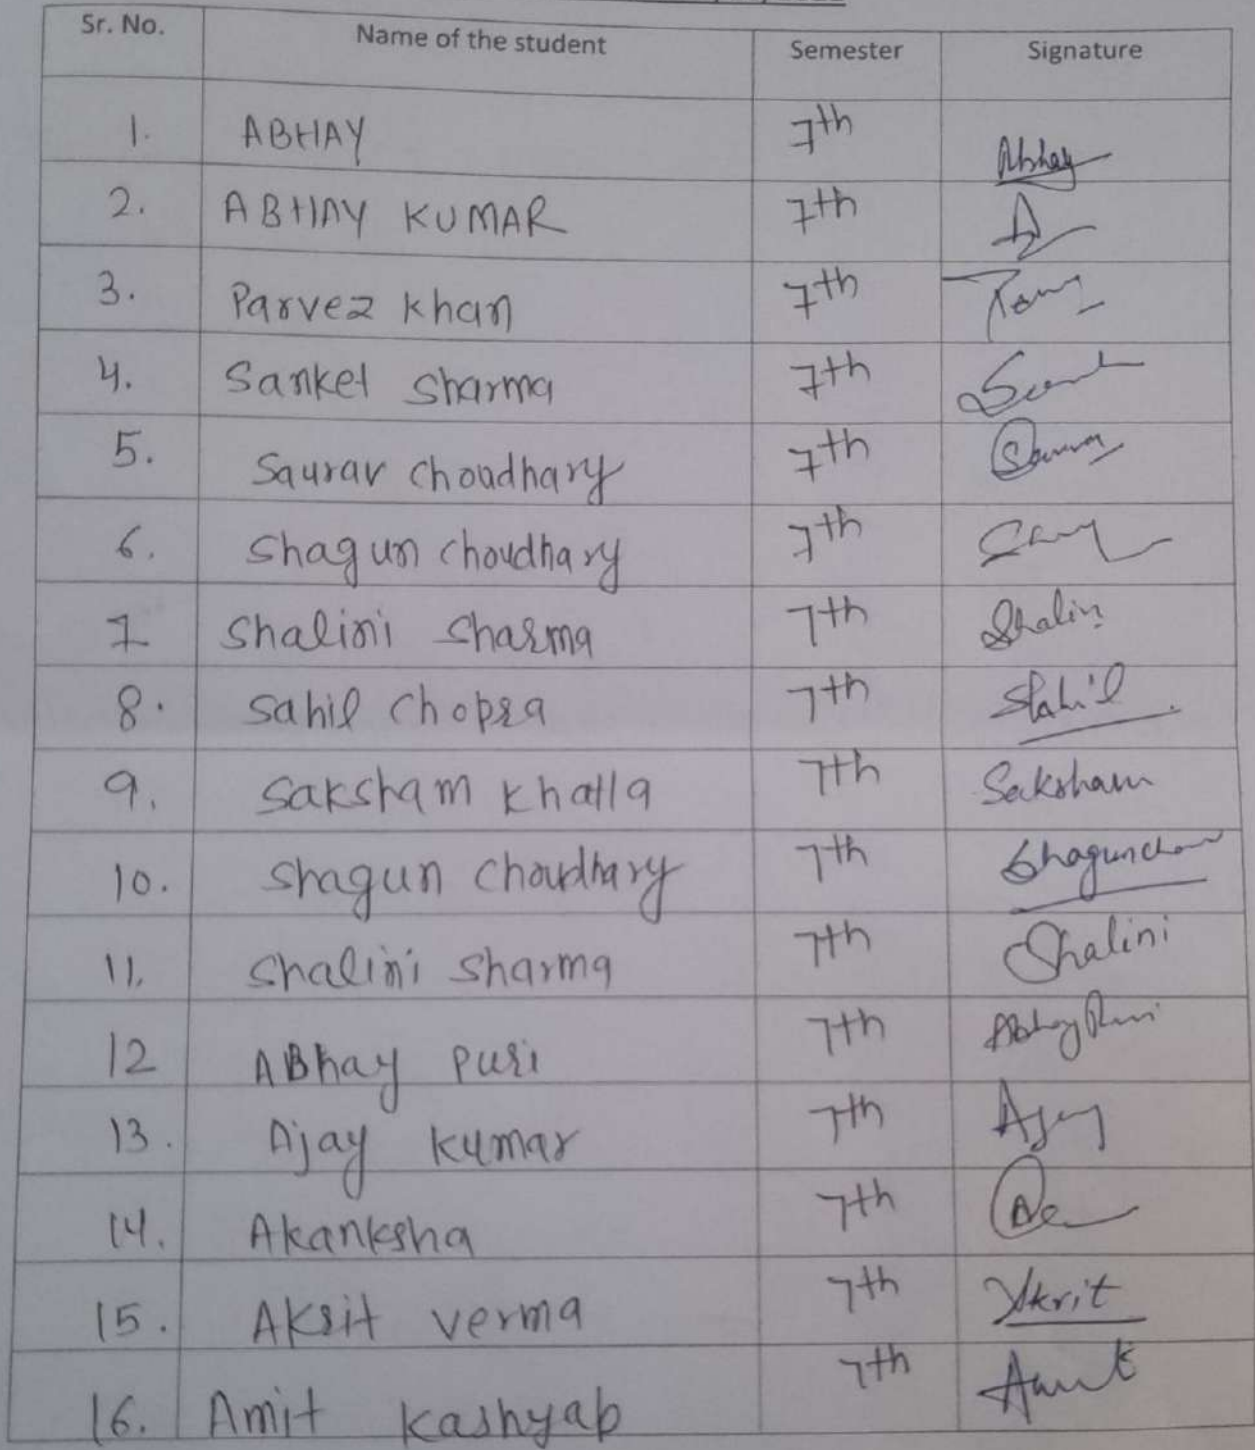 Sr. No. Name of the student Semester Signature
1. ABHAY 7th Abhay
2. ABHAY KUMAR 7th
3. Parvez Khan 7th
4. Sanket Sharma 7th
5. Saurav Choudhary 7th
6. Shagun Choudhary 7th
7 Shalini Sharma 7th Shalin
8. Sahil Chopra 7th Sahil
9. Saksham Khatta 7th Saksham
10. Shagun Choudhary 7th
11. Shalini Sharma 7th Shalini
12 ABhay Puri 7th Abhay Puri
13. Ajay Kumar 7th Ajay
14. Akanksha 7th
15. Akrit Verma 7th Akrit
16. Amit Kashyap 7th Amit